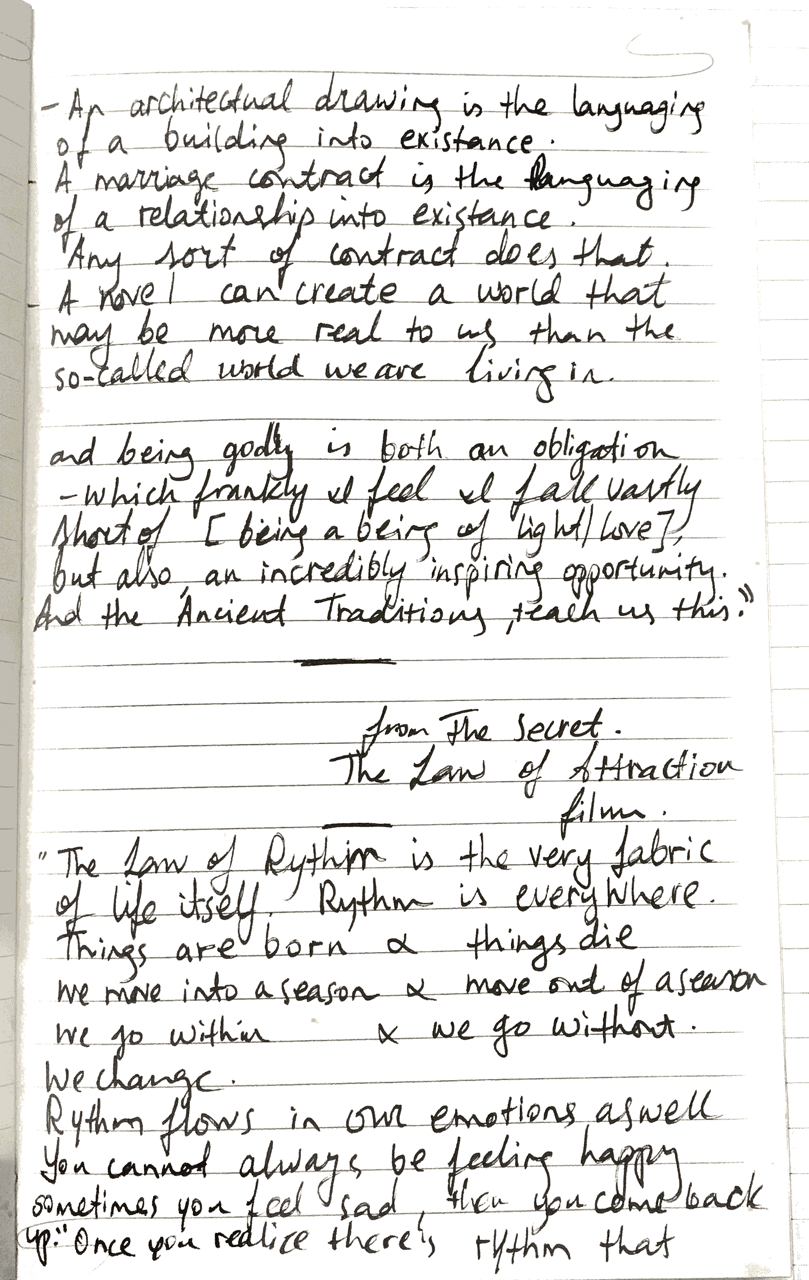 - An architectual drawing is the languaging
of a building into existance.
- A marriage contract is the languaging
of a relationship into existance.
"Any sort of contract does that.
- A novel can create a world that
may be more real to us than the
so-called world we are living in.
and being godly is both an obligation
- which frankly I feel I fall vastly
short of [being a being of light/love],
but also, an incredibly inspiring opportunity.
And the Ancient Traditions, teach us this."
from The Secret.
The Law of Attraction
film.
"The Law of Rythm is the very fabric
of life itself. Rythm is everywhere.
Things are born & things die
we move into a season & move out of a season
we go within & we go without.
We change.
Rythm flows in our emotions aswell
You cannot always be feeling happy
sometimes you feel sad, then you come back
up." Once you realize there's rythm that